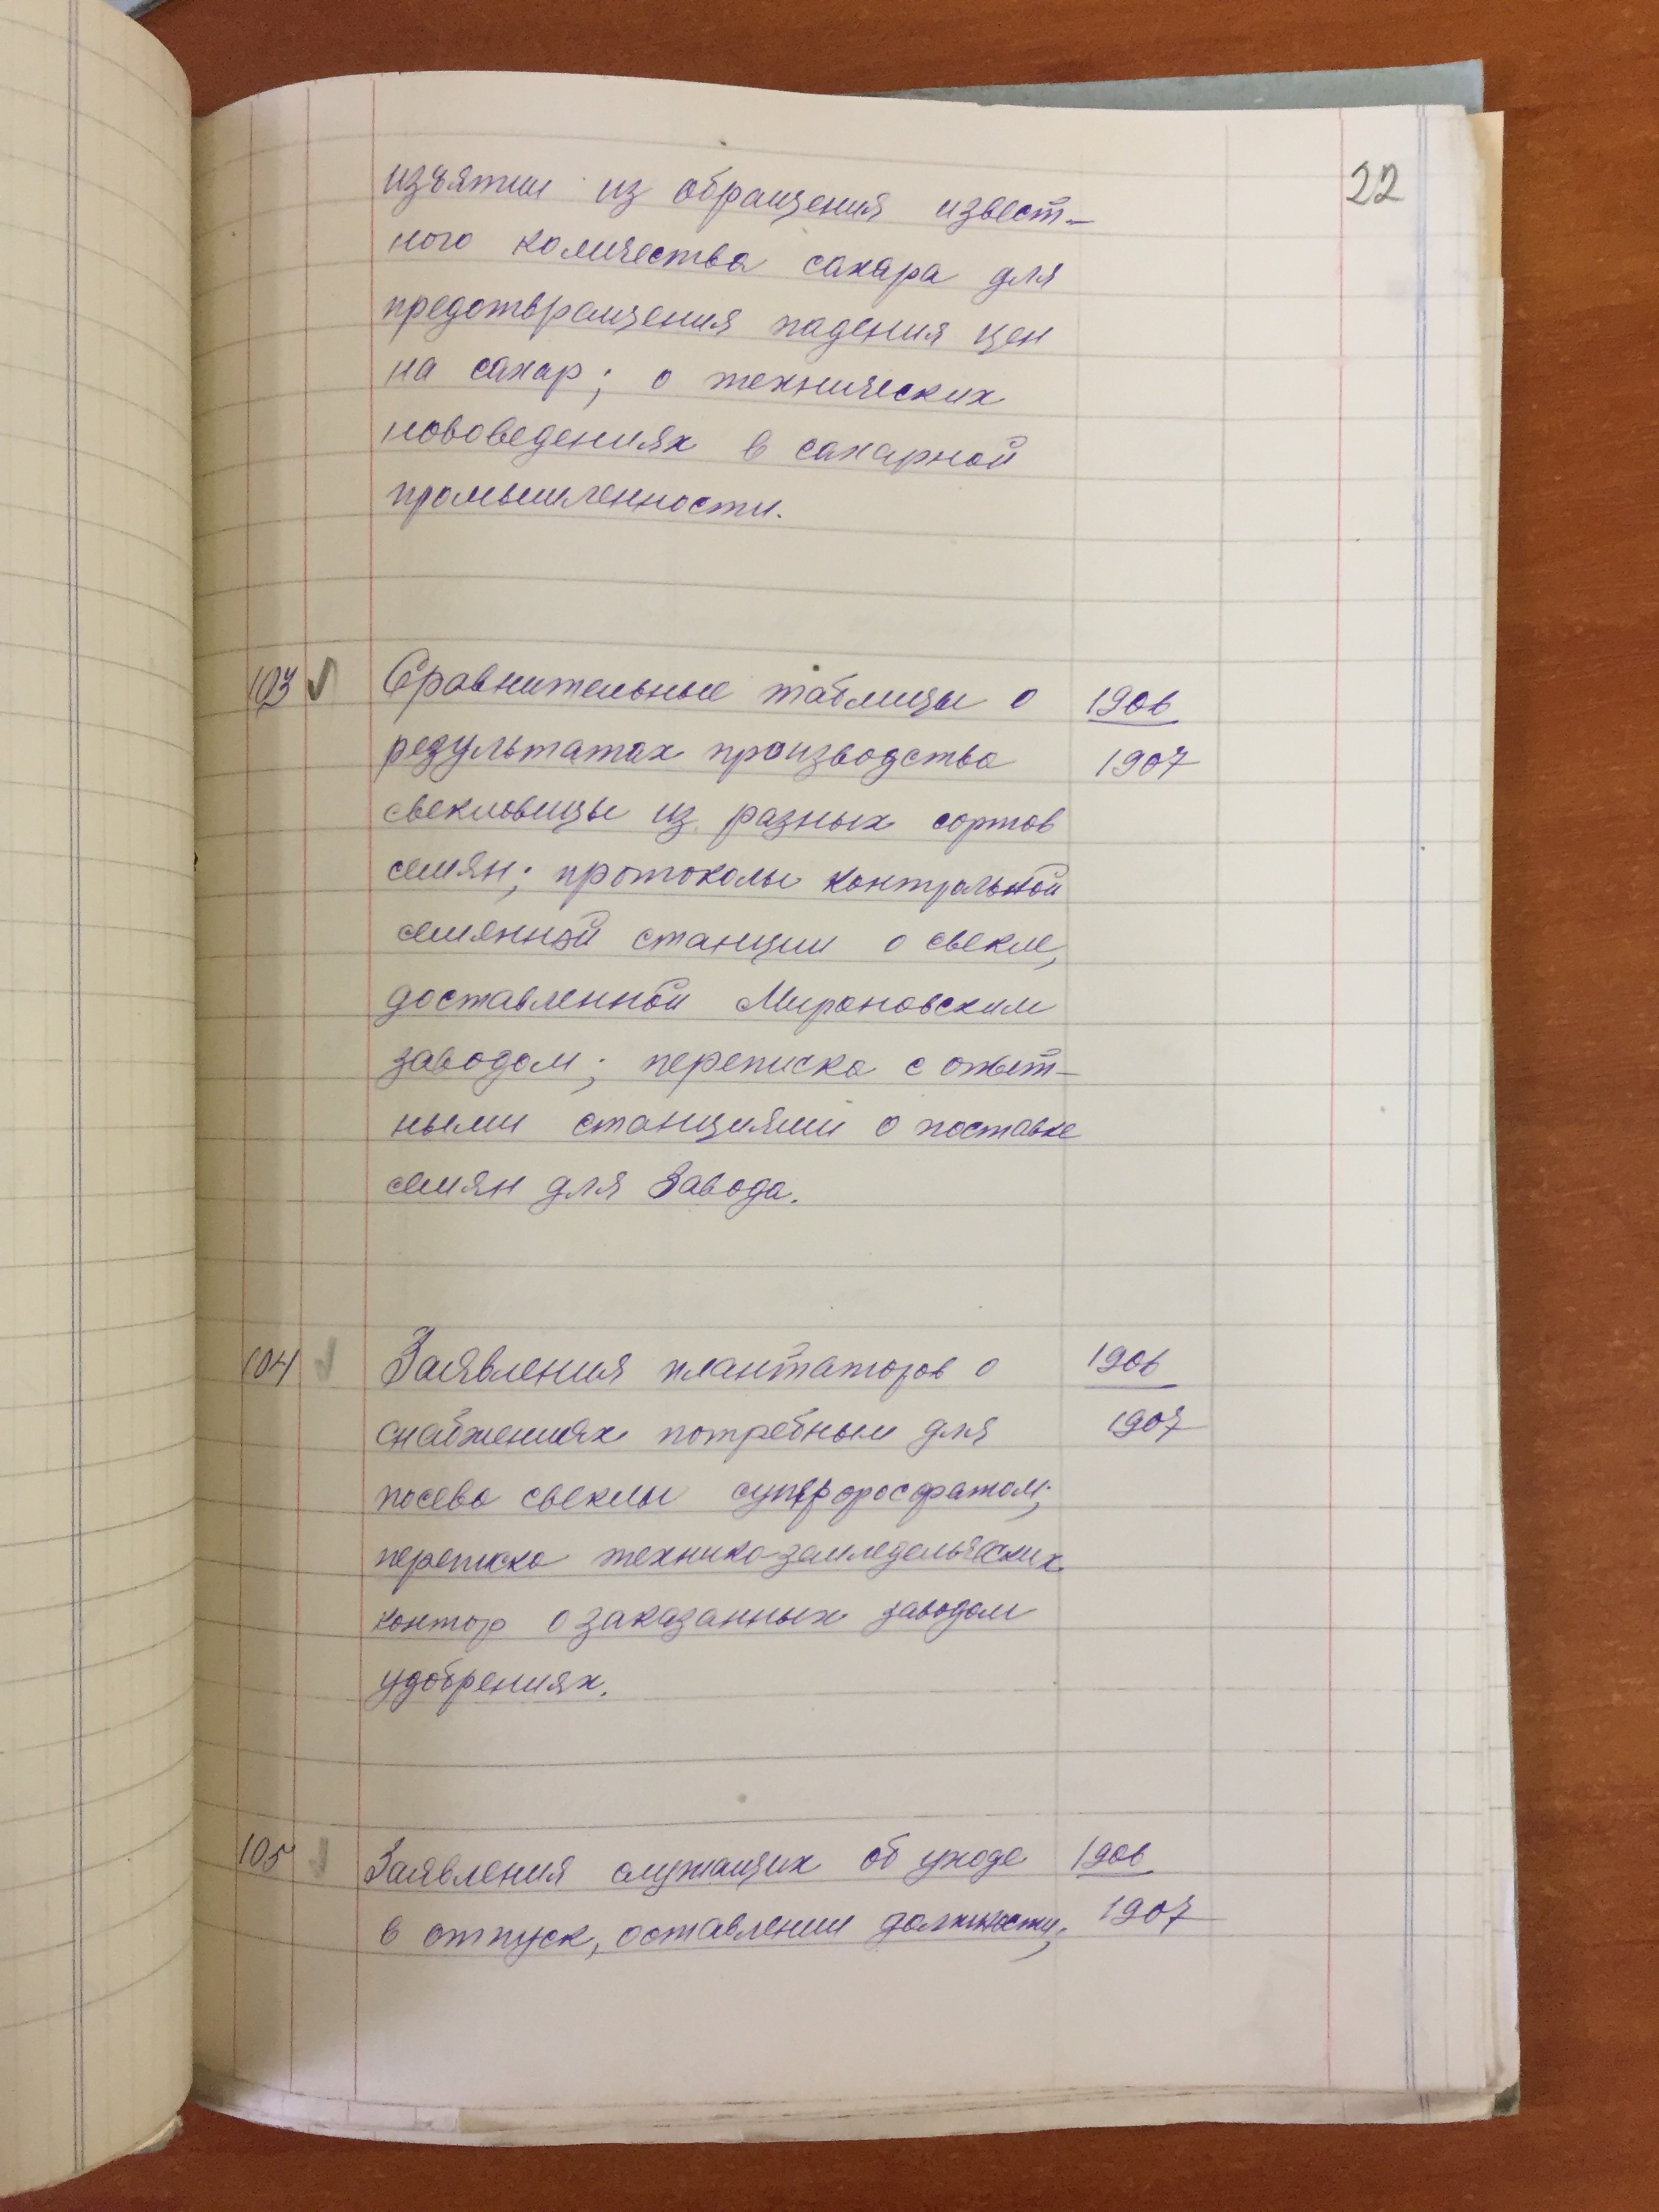 22
изъятии из обращения извест-
ного количества сахара для
предотвращения падения цен
на сахар; о технических
нововедениях в сахарной
промышленности.
103 ✓ Сравнительные таблицы о 1906
результатах производства 1907
свекловицы из разных сортов
семян; протоколы контрольной
семянной станции о свекле,
доставленной Мироновским
заводом; переписка с опыт-
ными станциями о поставке
семян для Завода.
104 ✓ Заявления плантаторов о 1906
снабжениях потребным для 1907
посева свеклы суперфосфатом;
переписка технико-земледельческих
контор о заказанных заводом
удобрениях.
105 ✓ Заявления служащих об уходе 1906
в отпуск, оставлении должности; 1907